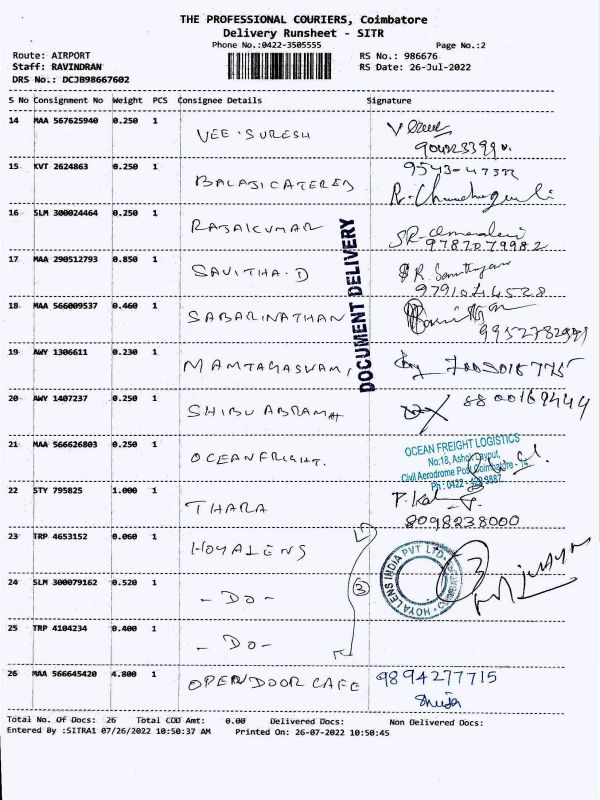 THE PROFESSIONAL COURIERS, Coimbatore
Delivery Runsheet - SITR
Phone No.:0422-3505555 Page No.:2
Route: AIRPORT RS No.: 986676
Staff: RAVINDRAN RS Date: 26-Jul-2022
DRS No.: DCJB98667602
S No Consignment No Weight PCS Consignee Details Signature
14 MAA 567625940 0.250 1 VEE. SURESH
15 KVT 2624863 0.250 1 BALAJI CATERERS
16 SLM 300024464 0.250 1 RAJAKUMAR
9787079982
17 MAA 290512793 0.850 1 SAVITHA.D
9791044528
18 MAA 566009537 0.460 1 SABARINATHAN
DOCUMENT DELIVERY
19 AWY 1306611 0.230 1
20 AWY 1407237 0.250 1 SHIBU ABRAHAM 8800169444
21 MAA 566626803 0.250 1 OCEANFRIGHT.
OCEAN FREIGHT LOGISTICS
No:18, Ashok Layout,
Civil Aerodrome Post, Coimbatore - 14.
22 STY 795825 1.000 1 THARA
8098238000
23 TRP 4653152 0.060 1 HOYALENS
HOYA LENS INDIA PVT LTD
24 SLM 300079162 0.520 1 - DO - 3
25 TRP 4104234 0.400 1 - DO -
26 MAA 566645420 4.800 1 OPENDOOR CAFE 9894277715
Total No. Of Docs: 26 Total COD Amt: 0.00 Delivered Docs: Non Delivered Docs:
Entered By :SITRA1 07/26/2022 10:50:37 AM Printed On: 26-07-2022 10:50:45